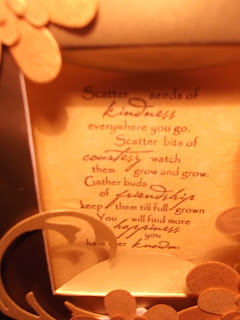 Scatter seeds of
kindness
everywhere you go.
Scatter bits of
courtesy watch
them grow and grow.
Gather buds
of friendship
keep them till full grown
You will find more
happiness
you
have ever known.